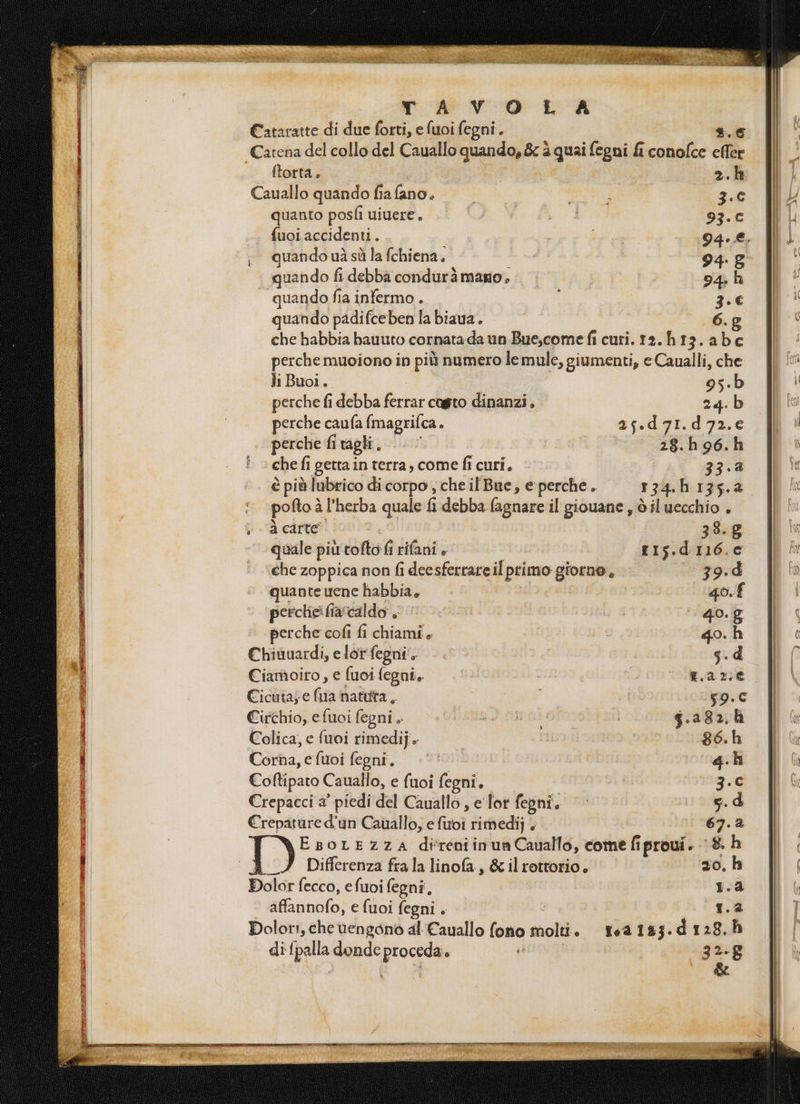 TAVOLA
Cataratte di due forti, e ſuoi ſegni. 2.e
Catena del collo del Cauallo quando, & à quai ſegni ſi conoſce eſſer
ſtorta. 2.h
Cauallo quando ſia ſano. 3.c
quanto posſi uiuere. 93.c
ſuoi accidenti. 94.e.
quando uà sù la ſchiena. 94.g
quando ſi debba condur à mano. 94.h
quando ſia infermo. 3.e
quando padiſce ben la biaua. 6.g
che habbia hauuto cornata da un Bue, come ſi curi. 12.h 13.a b c
perche muoiono in più numero le mule, giumenti, e Caualli, che
li Buoi. 95.b
perche ſi debba ferrar costo dinanzi. 24.b
perche cauſa ſmagriſca. 25.d 71.d 72.e
perche ſi tagli. 28.h 96.h
che ſi getta in terra, come ſi curi. 33.a
è più lubrico di corpo, che il Bue, e perche. 134.h 135.a
poſto à l'herba quale ſi debba ſagnare il giouane, ò il uecchio.
à carte 38.g
quale più toſto ſi riſani. 115.d 116.e
che zoppica non ſi dee sferrare il primo giorno. 39.d
quante uene habbia. 40.f
perche ſia caldo. 40.g
perche coſi ſi chiami. 40.h
Chiuardi, e lor ſegni. 5.d
Ciamoiro, e ſuoi ſegni. 1.a 2.e
Cicuta, e ſua natura. 59.c
Circhio, e ſuoi ſegni. 5.a 82.h
Colica, e ſuoi rimedij. 86.h
Corna, e ſuoi ſegni. 4.h
Coſtipato Cauallo, e ſuoi ſegni. 3.c
Crepacci a' piedi del Cauallo, e lor ſegni. 5.d
Crepature d'un Cauallo, e ſuoi rimedij. 67.a
DEBOLEZZA di reni in un Cauallo, come ſi proui. 8.h
Differenza fra la linoſa, & il rottorio. 20.h
Dolor ſecco, e ſuoi ſegni. 1.a
affannoſo, e ſuoi ſegni. 1.a
Dolori, che uengono al Cauallo ſono molti. 1.a 125.d 128.h
di ſpalla donde proceda. 32.g
&